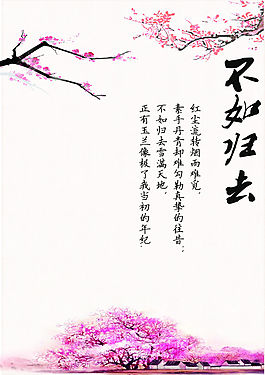 不如归去
红尘流转烟雨难觅，
素手丹青却难勾勒真挚的往昔；
不如归去雪满天地，
正有玉兰像极了我当初的年纪.